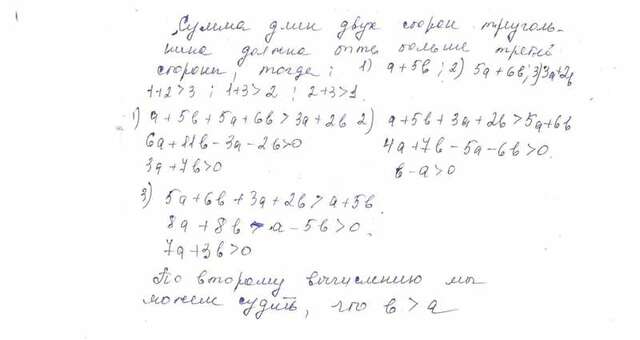 Сумма длин двух сторон треуголь-
ника должна быть больше третьей
стороны, тогда: 1) a+5в; 2) 5a+6в; 3) 3a+2в
1+2>3; 1+3>2; 2+3>1.
1) a+5в+5a+6в>3a+2в 2) a+5в+3a+2в>5a+6в
6a+11в-3a-2в>0 4a+7в-5a-6в>0.
3a+7в>0 в-a>0
3) 5a+6в+3a+2в>a+5в.
8a+8в-a-5в>0.
7a+3в>0
По второму вычислению мы
можем судить, что в>a